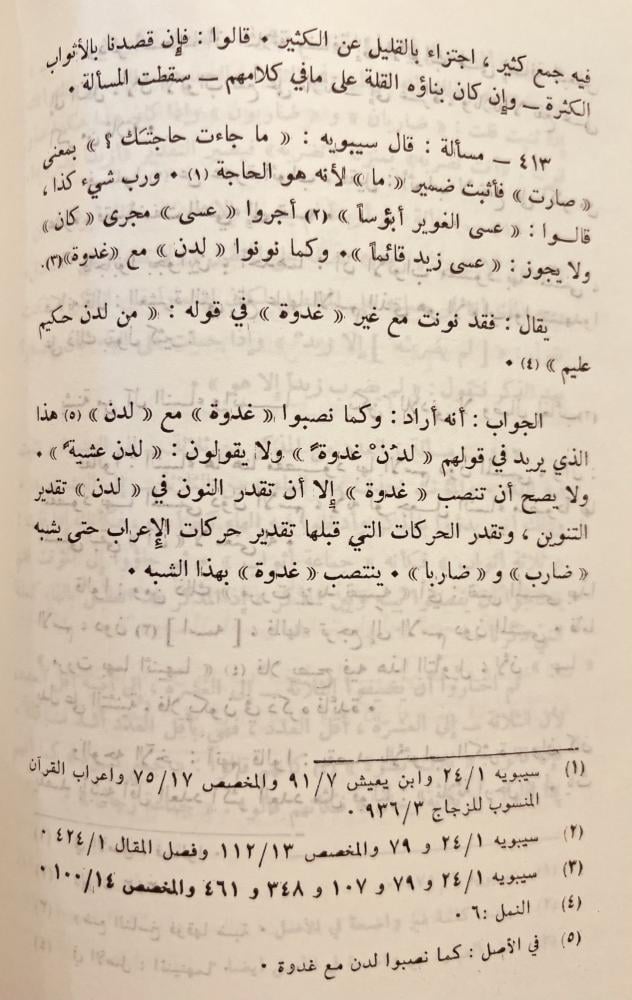 فيه جمع كثير ، اجتزاء بالقليل عن الكثير · قالوا : فإن قصدنا بالأثواب
الكثرة ــ وإن كان بناؤه القلة على مافي كلامهم ــ سقطت المسألة ·
٤١٣ ــ مسألة : قال سيبويه : « ما جاءت حاجتَك ؟ » بمعنى
« صارت » فأثبت ضمير « ما » لأنه هو الحاجة (١) · ورب شيء كذا ،
قالــوا : « عسى الغوير أبؤساً » (٢) أجروا « عسى » مجرى « كان »
ولا يجوز : « عسى زيد قائماً » · وكما نونوا « لدن » مع «غدوة»(٣).
يقال : فقد نونت مع غير « غدوة » في قوله : « من لدن حكيم
عليم » (٤) ·
الجواب : أنه أراد : وكما نصبوا « غدوة » مع « لدن » (٥) هذا
الذي يريد في قولهم « لدُنْ غدوةً » ولا يقولون : « لدن عشيةً » ·
ولا يصح أن تنصب « غدوة » إلا أن تقدر النون في « لدن » تقدير
التنوين ، وتقدر الحركات التي قبلها تقدير حركات الإعراب حتى يشبه
« ضارب » و « ضاربا » · ينتصب « غدوة » بهذا الشبه ·
(١) سيبويه ٢٤/١ وابن يعيش ٩١/٧ والمخصص ٧٥/١٧ واعراب القرآن
المنسوب للزجاج ٩٣٦/٣ ·
(٢) سيبويه ٢٤/١ و ٧٩ والمخصص ١١٢/١٣ وفصل المقال ٤٢٤/١ ·
(٣) سيبويه ٢٤/١ و ٧٩ و ١٠٧ و ٣٤٨ و ٤٦١ والمخصص ١٠٠/١٤ ·
(٤) النمل :٦ ·
(٥) في الأصل : كما نصبوا لدن مع غدوة ·